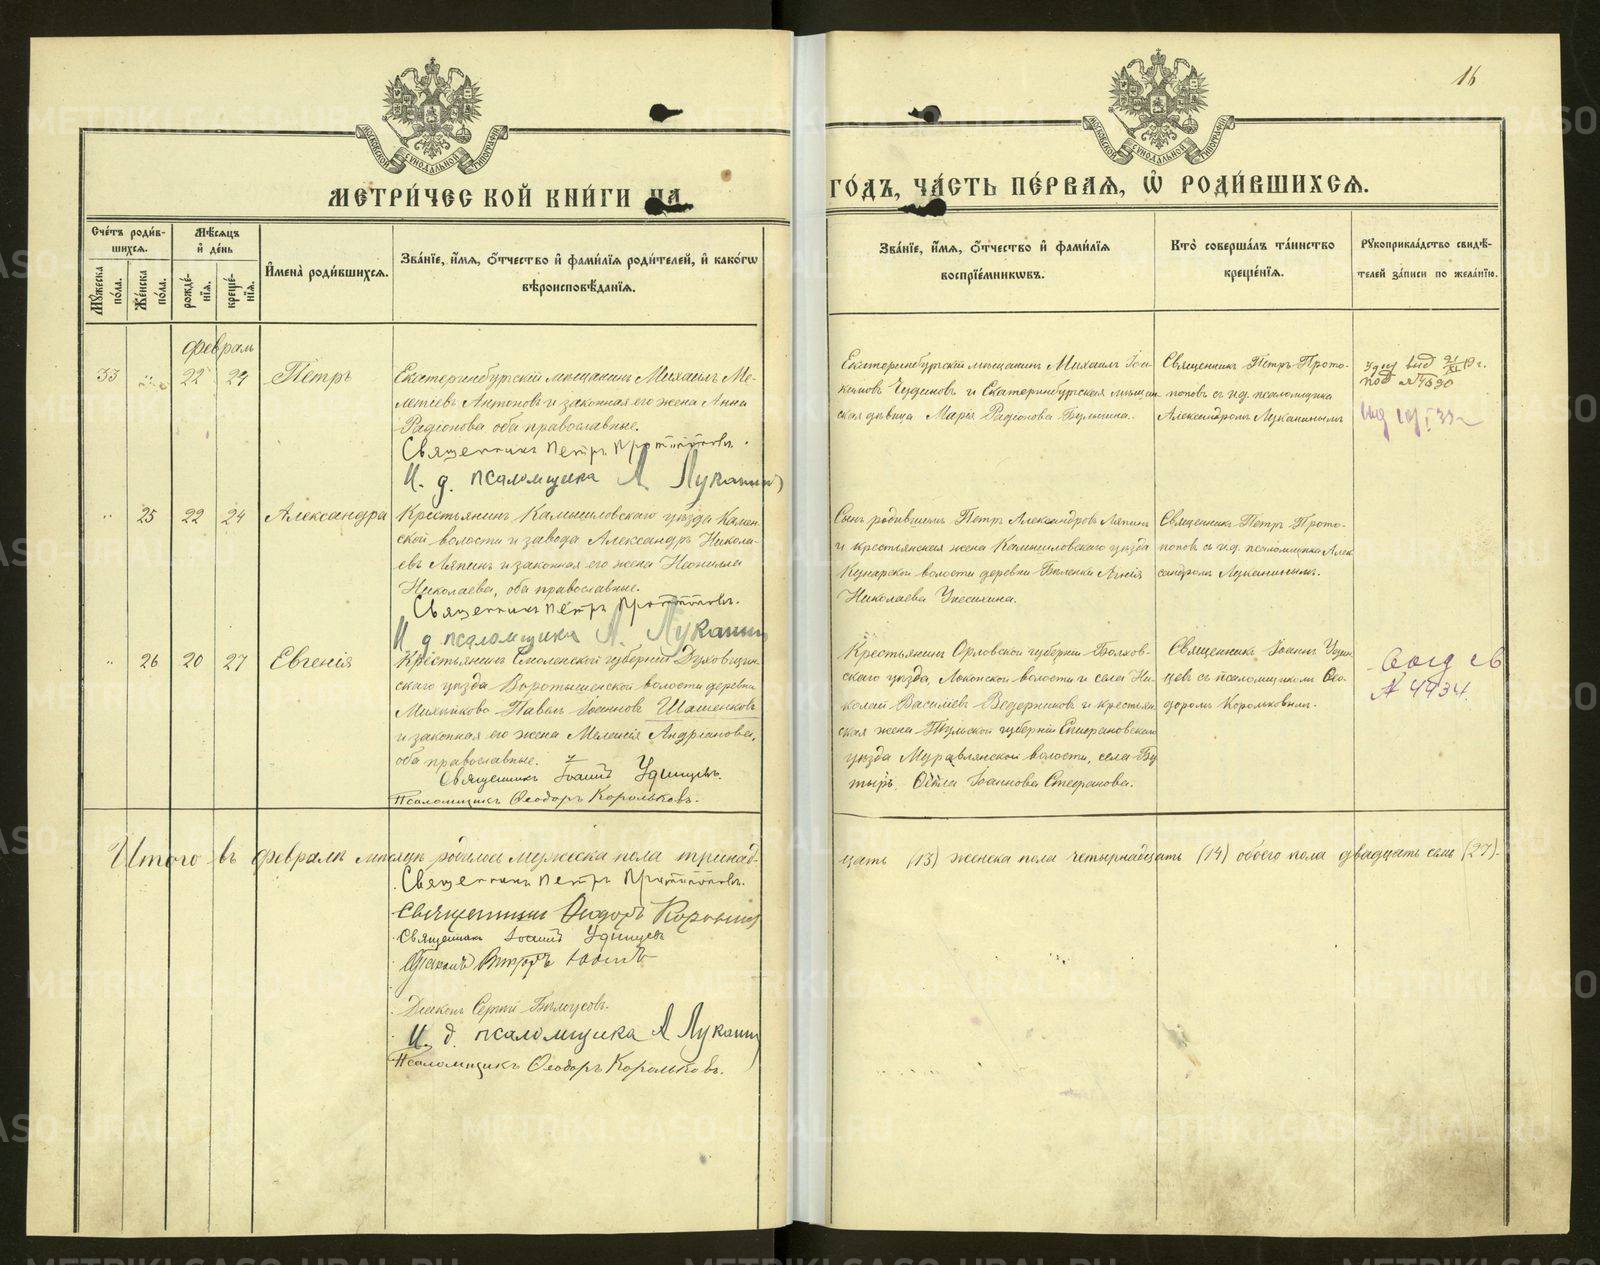 16
МОСКОВСКОЙ СѴНОДАЛЬНОЙ ТИПОГРАФІИ
МОСКОВСКОЙ СѴНОДАЛЬНОЙ ТИПОГРАФІИ
МЕТРИ́ЧЕСКОЙ КНИ́ГИ НА
ГО́ДЪ, ЧА́СТЬ ПЕ́РВАЯ, Ѡ҆ РОДИ́ВШИХСЯ.
Сче́тъ роди́в-
шихся.
Мѣ́сяцъ
и҆ де́нь
Мꙋ́жеска по́ла.
Же́нска по́ла.
рожде́-
нїя.
креще́-
нїя.
И҆мена̀ роди́вшихся.
Зва́нїе, и҆́мя, ѻ҆́тчество и҆ фами́лїя роди́телей, и҆ како́гѡ
вѣроисповѣ́данїя.
Зва́нїе, и҆́мя, ѻ҆́тчество и҆ фами́лїя
воспрїе́мникѡвъ.
Кто̀ соверша́лъ та́инство
креще́нїя.
Рꙋкоприкла́дство свидѣ́-
телей за́писи по жела́нїю.
Февраль
33 22 24 Петръ
Екатеринбургскій мѣщанинъ Михаилъ Ме-
летіевъ Антоновъ и законная его жена Анна
Радіонова оба православные.
Священникъ Петръ Протопоповъ.
И. д. псаломщика А Луканин
Екатеринбургскій мѣщанинъ Михаилъ Іоа-
кимовъ Чудиновъ и Екатеринбургская мѣщан
ская дѣвица Марія Радіонова
Священникъ Петръ Прото-
поповъ съ и.д. псаломщика
Александромъ Луканинымъ
25 22 24 Александра
Крестьянинъ Камышловскаго уѣзда Камен-
ской волости и завода Александръ Никола-
евъ Ляпинъ и законная его жена Неонилла
Николаева, оба православные.
Священникъ Петръ Протопоповъ.
И д псаломщика А. Луканин
Сынъ родившихъ Петръ Александровъ Ляпинъ
и крестьянская жена Камышловскаго уѣзда
Кунарской волости деревни Агнія
Николаева
Священникъ Петръ Прото-
поповъ съ и.д. псаломщика Алек
сандромъ Луканинымъ.
26 20 27 Евгенія
Крестьянинъ Смоленской губерніи Духовщин-
скаго уѣзда Воротышенской волости деревни
Павелъ Іоанновъ Шашенковъ
и законная его жена Меланія Андріанова,
оба православные.
Священникъ Іоаннъ Удинцевъ.
Псаломщикъ Ѳеодоръ Корольковъ.
Крестьянинъ Орловской губерніи Болхов-
скаго уѣзда, волости и села Ни-
колай Василіевъ Ведерниковъ и крестьян
ская жена Тульской губерніи Епифановскаго
уѣзда Муравлянской волости, села Бу
тырь, Ѳёкла Іоаннова Стефанова.
Священникъ Іоаннъ Удин-
цевъ съ псаломщикомъ Ѳео-
доромъ Корольковымъ.
№ 4934
Итого въ февралѣ мѣсяцѣ родилось мужеска пола тринад-
цать (13) женска пола четырнадцать (14) обоего пола двадцать семь (27).
Священникъ Петръ Протопоповъ.
Священникъ Ѳеодоръ
Священникъ Іоаннъ Удинцевъ
Діаконъ Сергій Бѣлоусовъ.
И. д. псаломщика А Луканин
Псаломщикъ Ѳеодоръ Корольковъ.
METRIKI.GASO-URAL.RU